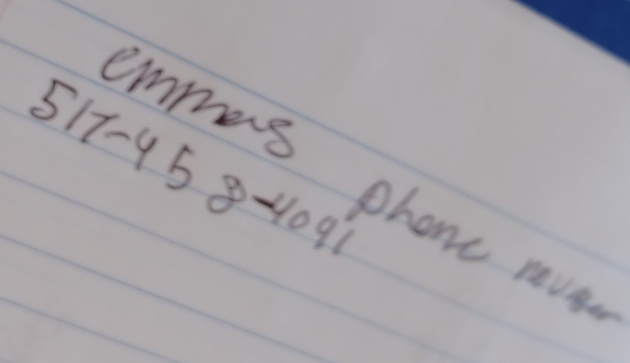 emmas phone number
517-458-4091